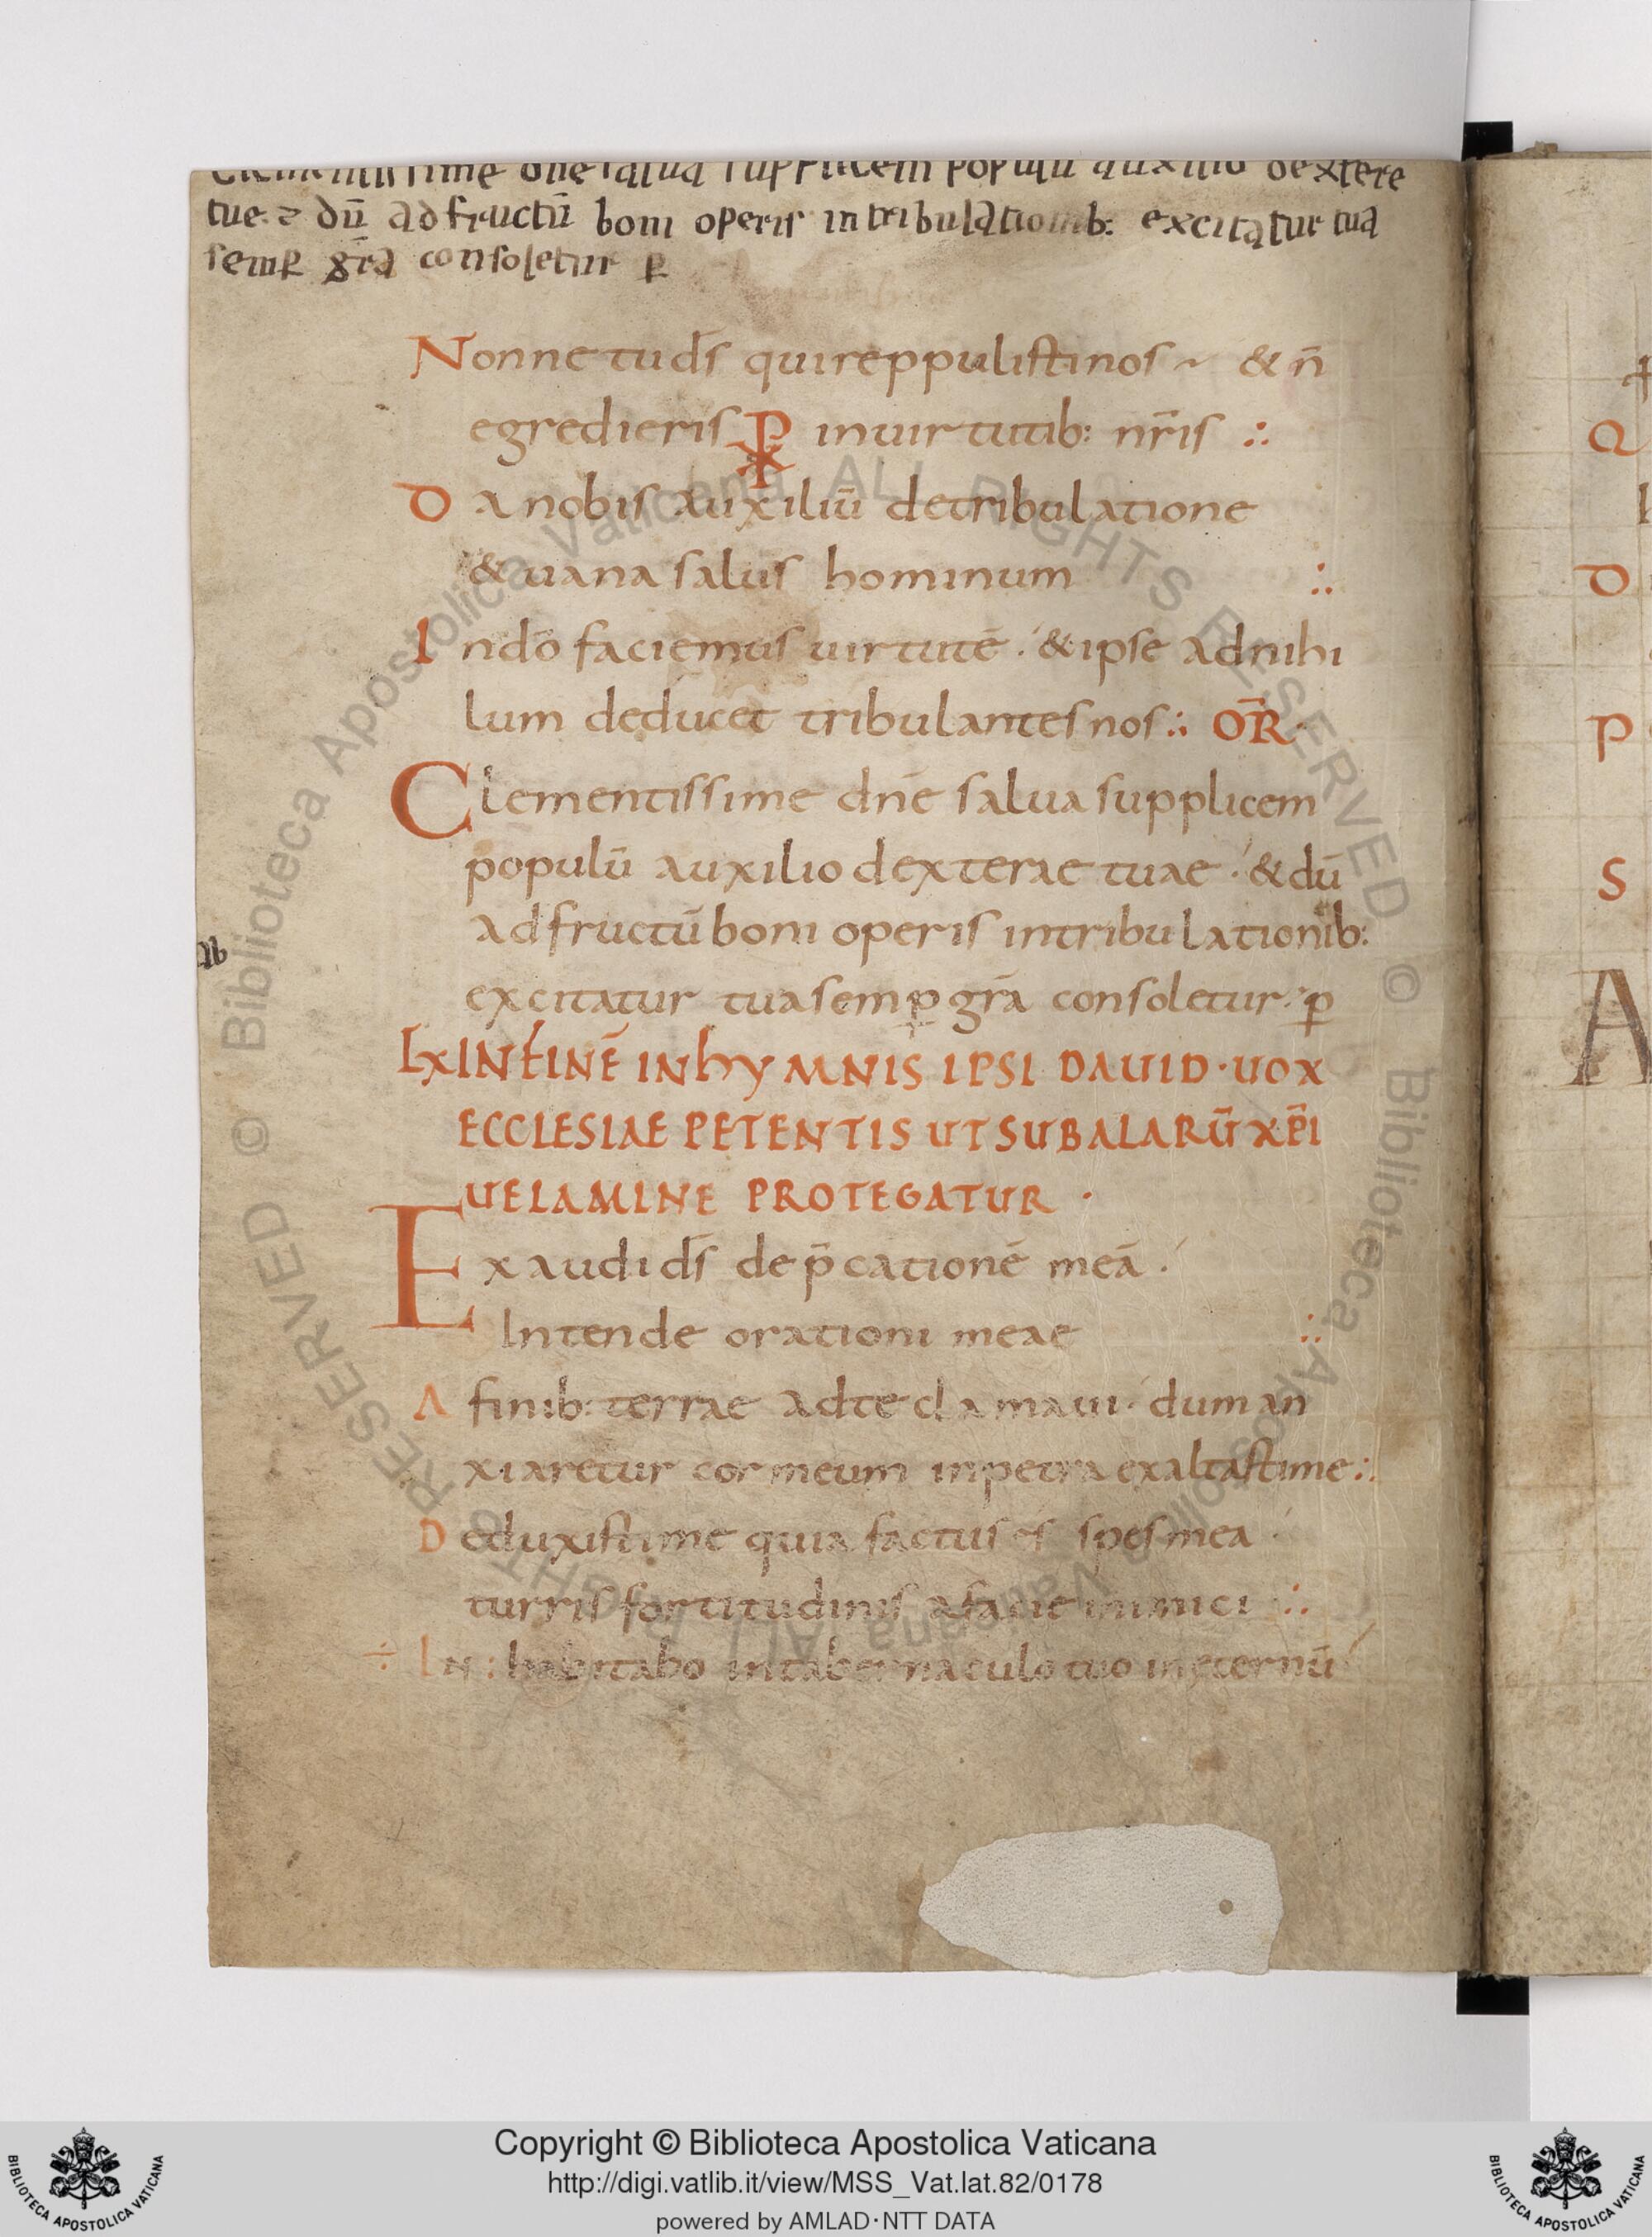 Clementissime dne salua supplicem populu auxilio dextere
tue. ⁊ dū ad fructū boni operis in tribulationib: excitatur tua
semꝑ gr̄a consoletur ꝑ
Nonne tu ds̄ qui reppulisti nos ~ & n̄
egredieris ⳩ in uirtutib: nr̄is ∴
Da nobis auxiliū de tribulatione
& uana salus hominum ∴
In dō faciemus uirtutē · & ipse ad nihi
lum deducet tribulantes nos ∴ OR̄
Clementissime dn̄e salua supplicem
populū auxilio dexterae tuae · & dū
ad fructū boni operis in tribulationib:
excitatur tua semꝑ gr̄a consoletur · ꝑ
LX IN FINĒ IN HYMNIS IPSI DAUID · UOX
ECCLESIAE PETENTIS UT SUB ALARŪ XP̄I
UELAMINE PROTEGATUR ·
Exaudi ds̄ dep̄cationē meā ·
Intende orationi meae ∴
A finib: terrae ad te clamaui · dum an
xiaretur cor meum in petra exaltasti me ∴
Deduxisti me quia factus es spes mea ·
turris fortitudinis a facie inimici ∴
÷ In : habitabo in tabernaculo tuo in eternū
ab
Q
D
P
S
A
Copyright © Biblioteca Apostolica Vaticana
http://digi.vatlib.it/view/MSS_Vat.lat.82/0178
powered by AMLAD·NTT DATA
BIBLIOTECA APOSTOLICA VATICANA
BIBLIOTECA APOSTOLICA VATICANA
© Biblioteca Apostolica Vaticana ALL RIGHTS RESERVED © Biblioteca Apostolica Vaticana ALL RIGHTS RESERVED